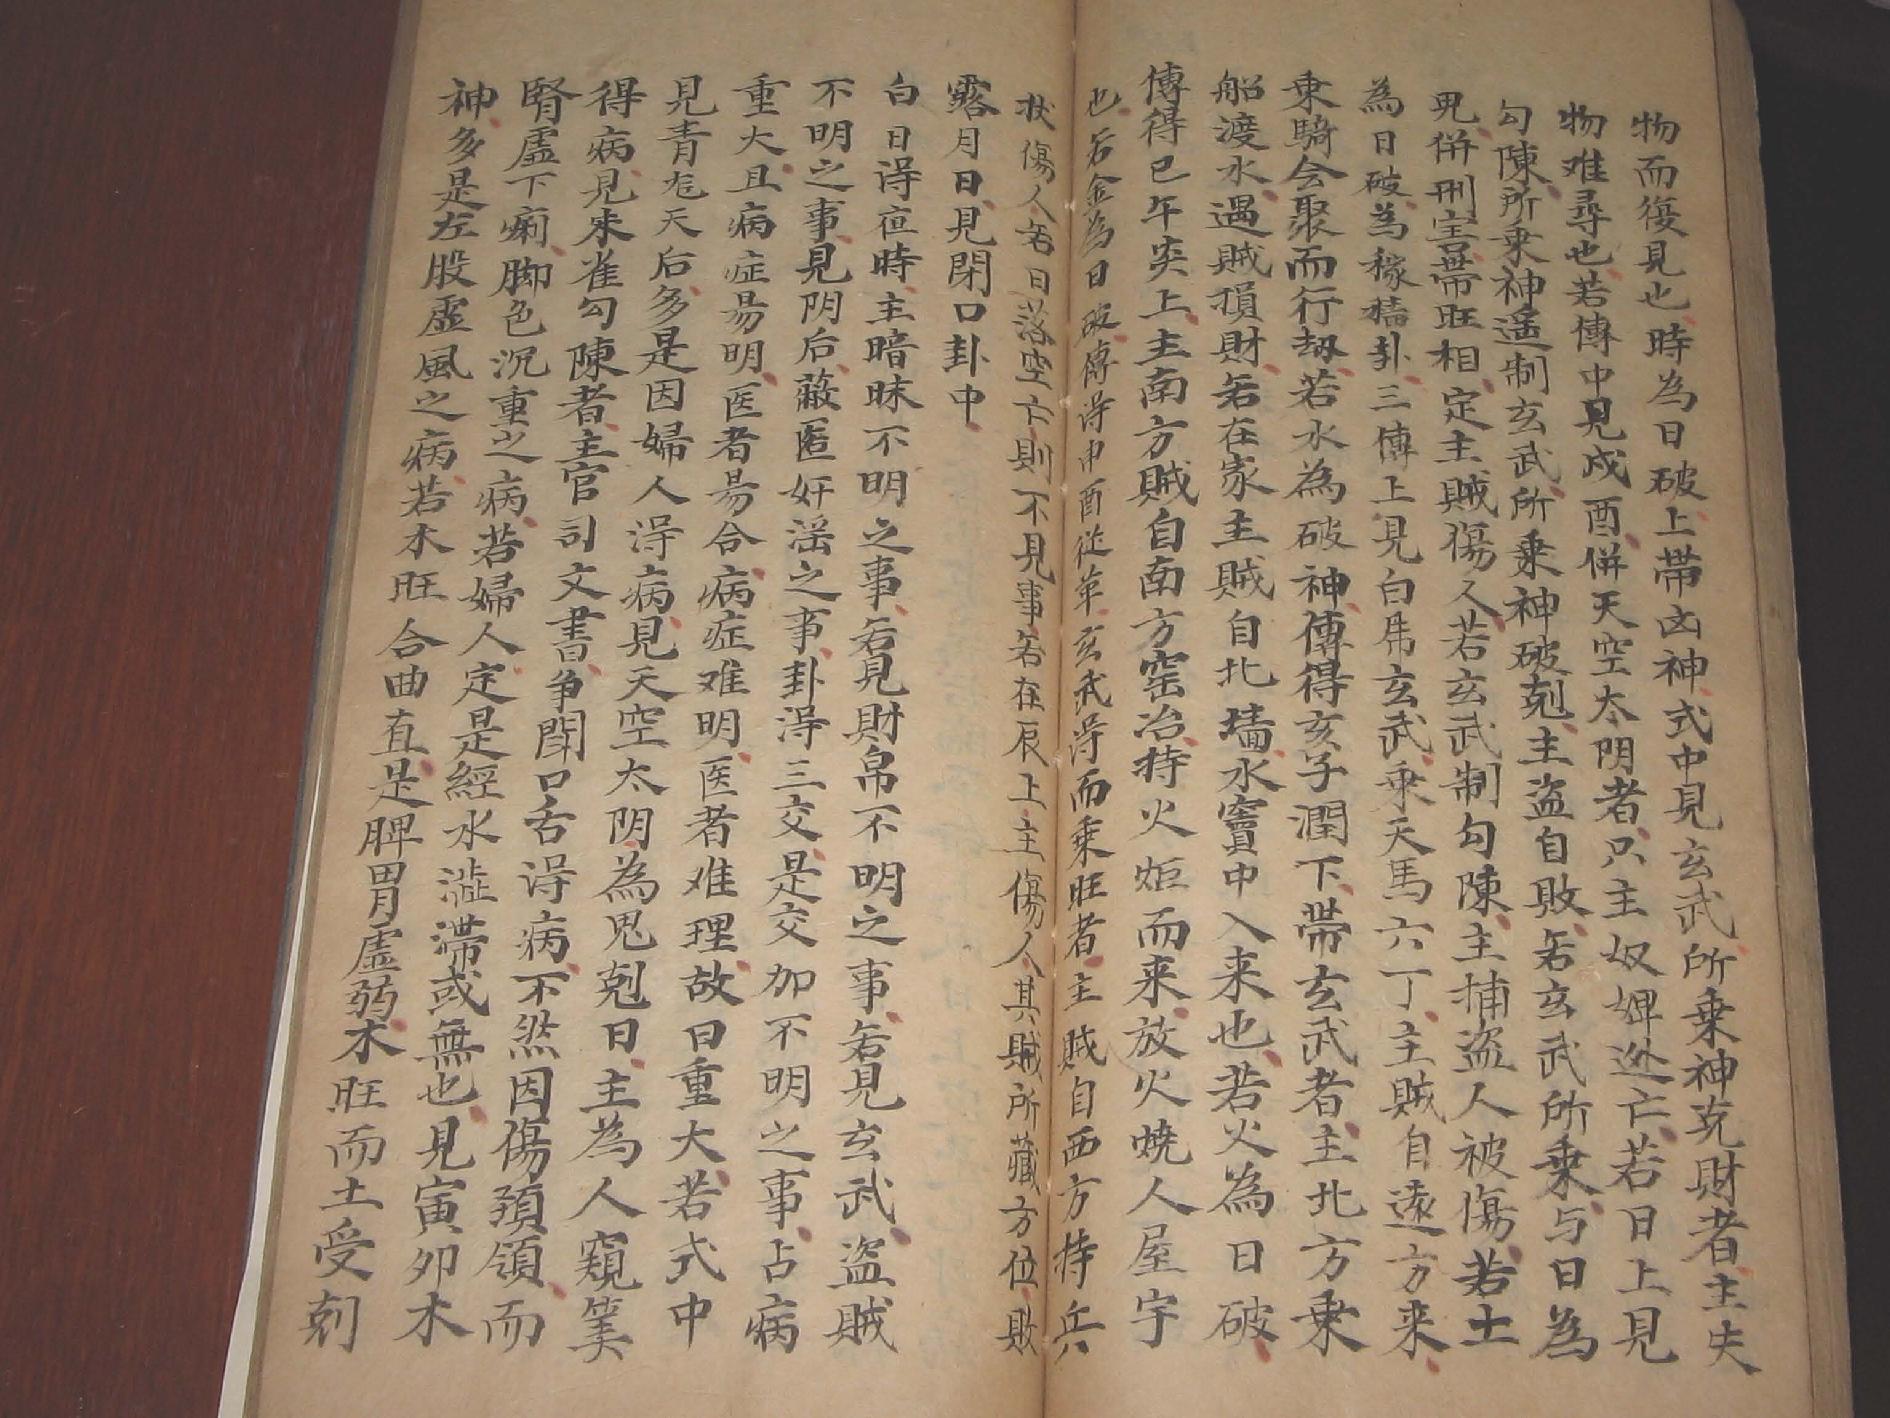 物而復見也時為日破上帶凶神式中見玄武所乘神克財者主失
物难尋也若傳中見戍酉併天空太阴者只主奴婢逊亡若日上見
勾陳所乘神遥制玄武所乘神破剋主盗自敗若玄武所乘与日為
鬼併刑害帶旺相定主賊傷人若玄武制勾陳主捕盗人被傷若土
為日破為稼穡卦三傳上見白席玄武乘天馬六丁主賊自遠方来
乘騎会聚而行劫若水為破神傳得亥子潤下帶玄武者主北方乘
船渡水遇賊損財若在家主賊自北墻水竇中入来也若火為日破
傳得巳午炎上主南方賊自南方窑冶持火炬而来放火燒人屋宇
也若金為日破傳淂申酉從革玄武淂而乘旺者主賊自西方持兵
状傷人若日落空亡則不見事若在辰上主傷人其賊所藏方位敗
露月日見閉口卦中
白日淂夜時主暗昧不明之事若見財帛不明之事若見玄武盗賊
不明之事見阴后蔽匿奸滛之事卦淂三交是交加不明之事占病
重大且病症昜明医者昜合病症难明医者难理故曰重大若式中
見青龙天后多是因婦人淂病見天空太阴為鬼剋日主為人窺筭
得病見朱雀勾陳者主官司文書争閗口舌淂病不然因傷頭領而
腎虛下痢脚色沉重之病若婦人定是經水澁滞或無也見寅夘木
神多是左股虛風之病若木旺合曲直是脾胃虛弱木旺而土受剋